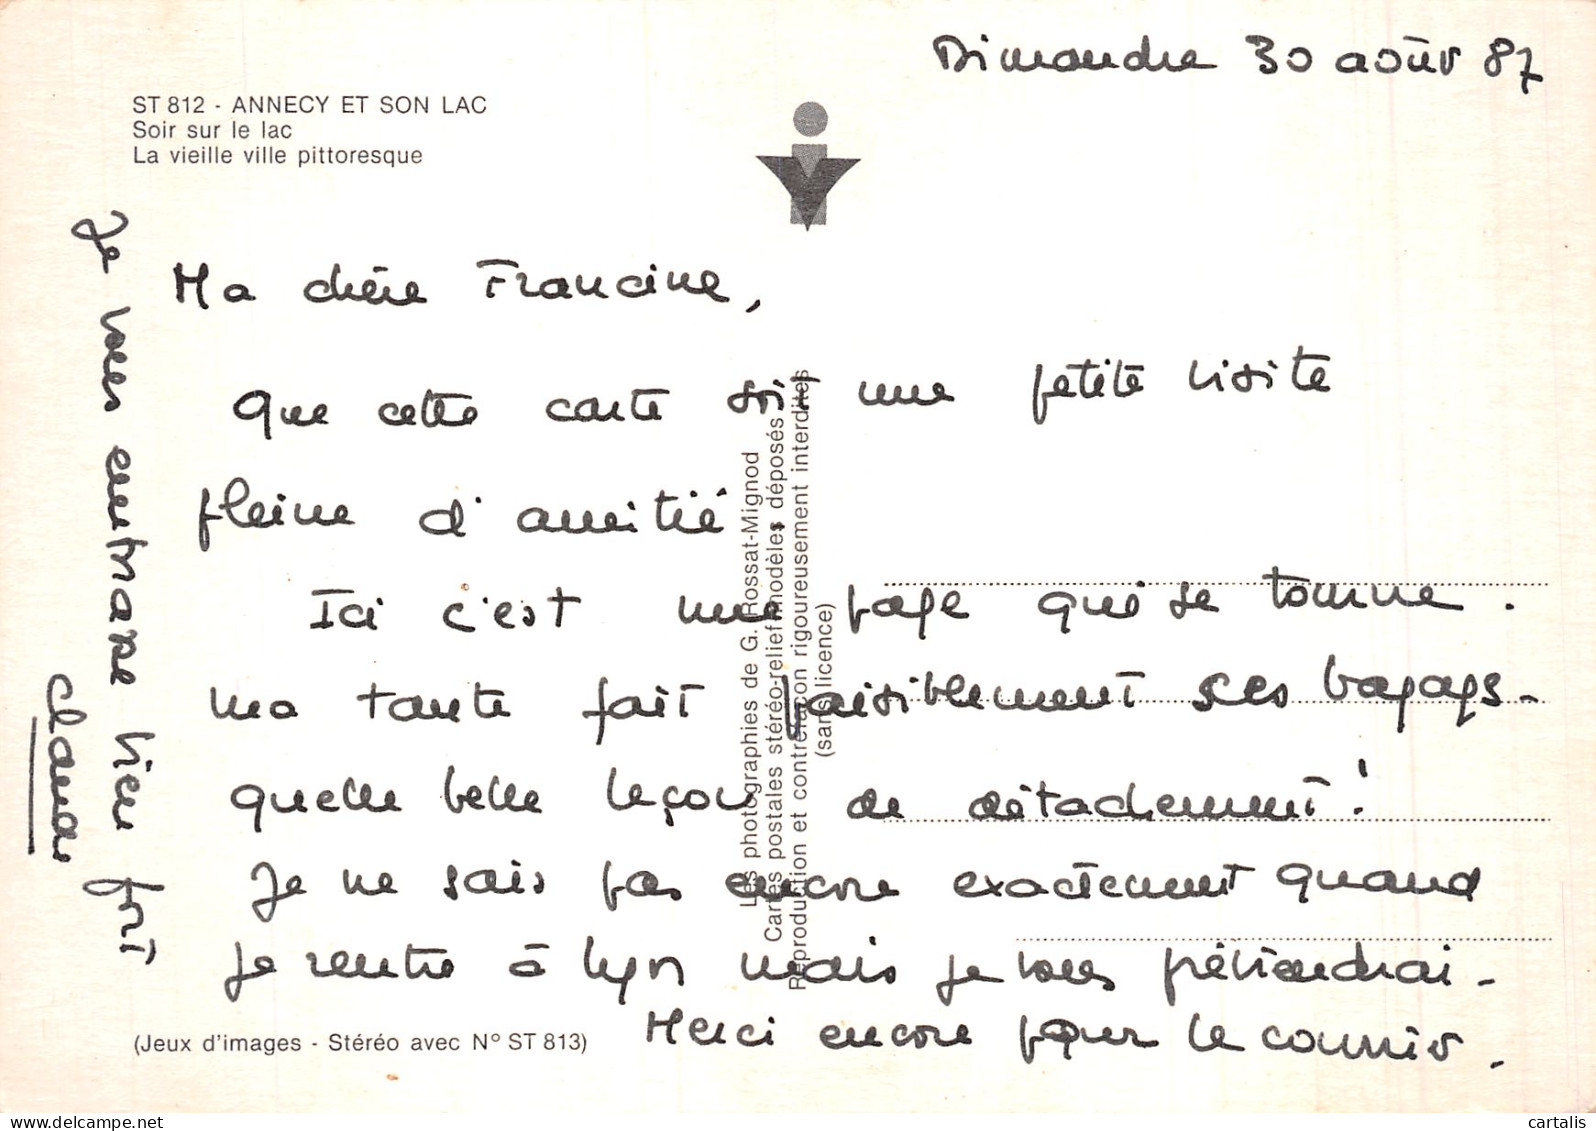 Dimandre 30 août 87
ST 812 - ANNECY ET SON LAC
Soir sur le lac
La vieille ville pittoresque
Ma chère Francine,
que cette carte soit une petite visite
pleine d'amitié
Ici c'est une page qui se tourne.
ma tante fait paisiblement ses bagages.
quelle belle leçon de détachement !
Je ne sais pas encore exactement quand
je rentre à Lyon mais je vous préviendrai.
Merci encore pour le courrier.
Je vous embrasse bien fort
Claude
Les photographies de G. Rossat-Mignod
Cartes postales stéréo-relief modèles déposés
Reproduction et contrefaçon rigoureusement interdites
(sans licence)
(Jeux d'images - Stéréo avec N° ST 813)
cartalis